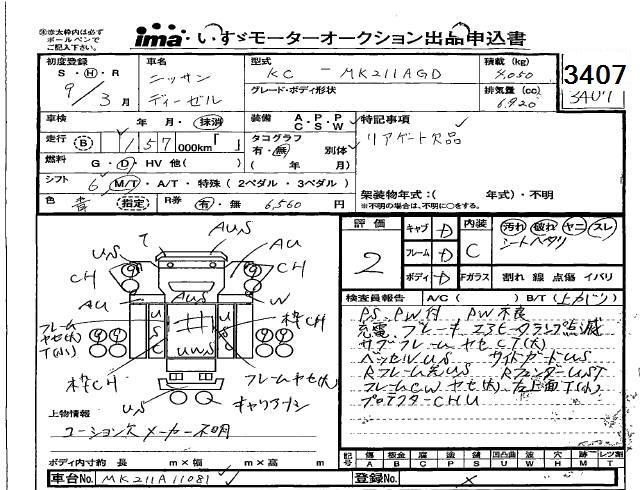 ※赤太枠内は必ず
ボールペンで
ご記入下さい。
ima・いすゞモーターオークション出品申込書
初度登録
S・H・R
9/3月
車名
ニッサン
ディーゼル
型式
KC - MK211AGD
グレード・ボディ形状
積載(kg)
4,050
排気量(cc)
6,920
3407
3407
車検 年 月・抹消
装備 A・P・P C S W
特記事項
リアゲート欠品
走行 B 157 000km
タコグラフ
有・無 別体
( 年 月)
燃料 G・D・HV 他( )
シフト 6 M/T・A/T・特殊(2ペダル・3ペダル)
架装物年式:( 年式)・不明
※不明の場合は、不明に○をする。
色 青 指定 R券 有・無 6,560 円
評価 2
キャブ D
フレーム D
ボディ D
内装 C
汚れ 破れ ヤニ スレ
シートヘタリ
Fガラス 割れ 線 点傷 イバリ
検査員報告 A/C( ) B/T(上かじり)
PS、PW付 PW不良
充電、ブレーキ、エラーランプ点滅
サブフレームヤセCT(大)
ベッセルUS サイドガードUS
RフレームUS RフェンダーUST
フレームCWヤセ(大) 左上面T(小)
プロテクターCHU
T
AUS
US
AU
CH
CH
AU
AUS
W
フレーム
ヤセ(大)
T(小)
U
S
枠CH
UWS
枠CH
フレームヤセ(大)
US
キャリアナシ
上物情報
ユーション欠 メーカー不明
ボディ内寸約 長 m×幅 m×高 m
記号 傷A 板金B 腐C 塗P 錆S 凹凸曲U 波W 穴H 跡M レンズ割T
車台No. MK211A11081
登録No. ×